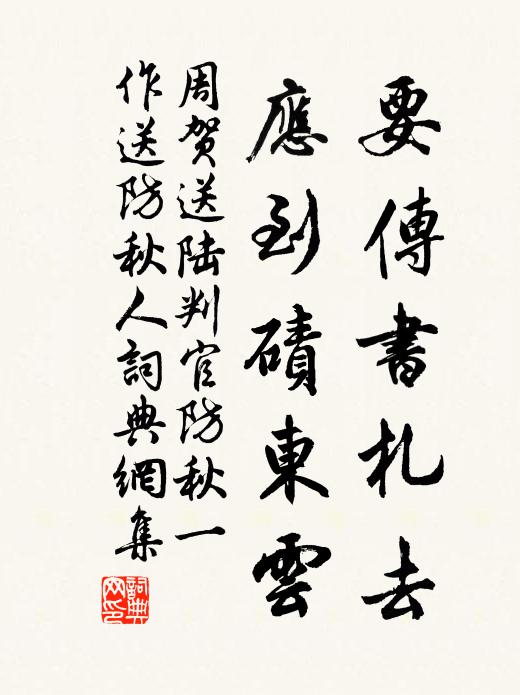 要傳書札去
應到磧東雲
周贺送陆判官防秋一
作送防秋人詞典網集
詞典
网印